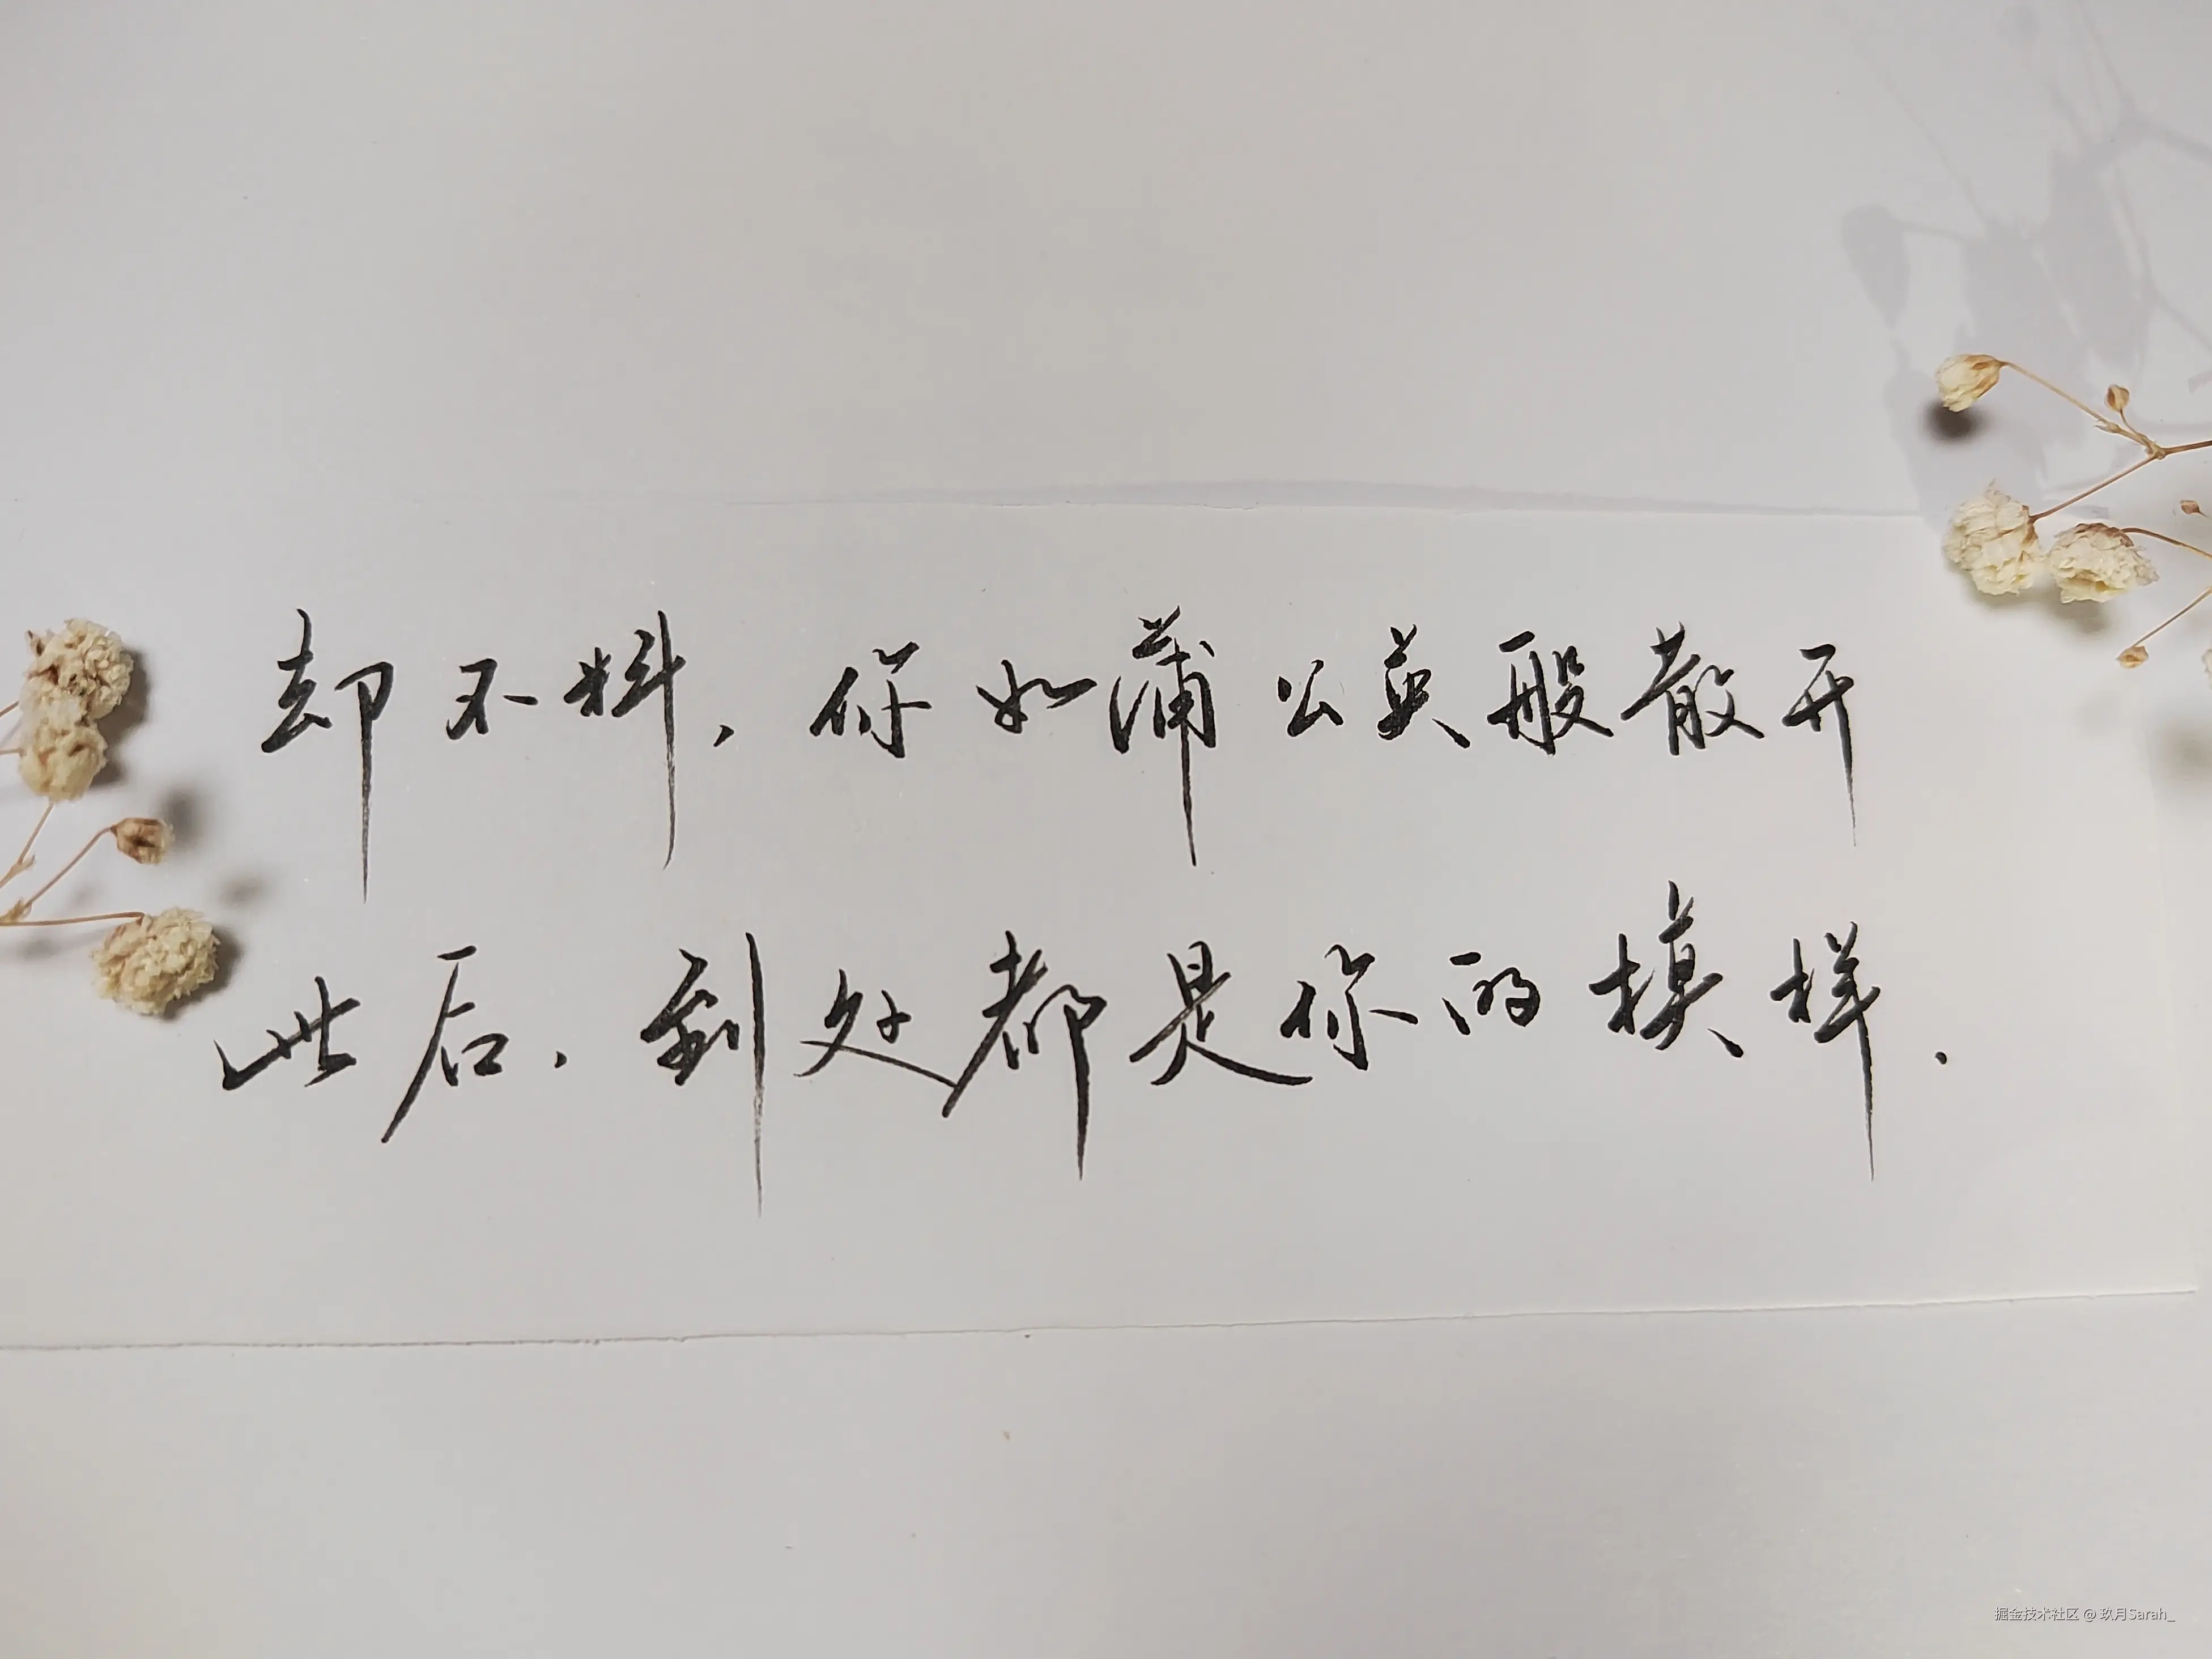 却不料,你如蒲公英般散开
此后,到处都是你的模样.
掘金技术社区 @ 玖月Sarah_